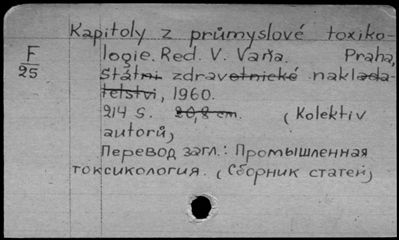 Kapitoly z průmyslové toxiko-
F
25
logie. Red. V. Vaňa. Praha,
Státní zdravotnické naklada-
telství, 1960.
214 s. 20,8 cm. (Kolektiv
autorů)
Перевод загл.: Промышленная
токсикология. (Сборник статей)